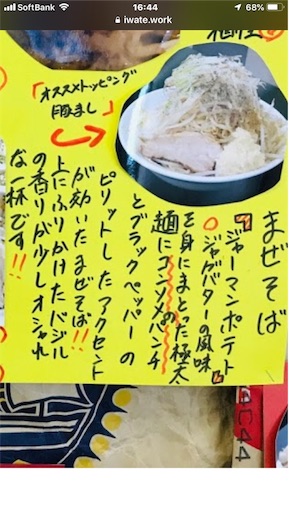 SoftBank 16:44 68%
iwate.work
「オススメトッピング
豚まし」
まぜそば
『ジャーマンポテト』
ジャガバターの風味
を身にまとった極太
麺にコンソメのパンチ
とブラックペッパーの
ピリットしたアクセント
が効いたまぜそば!!
上にふりかけたバジル
の香りが少しオシャレ
な一杯です!!
AC44